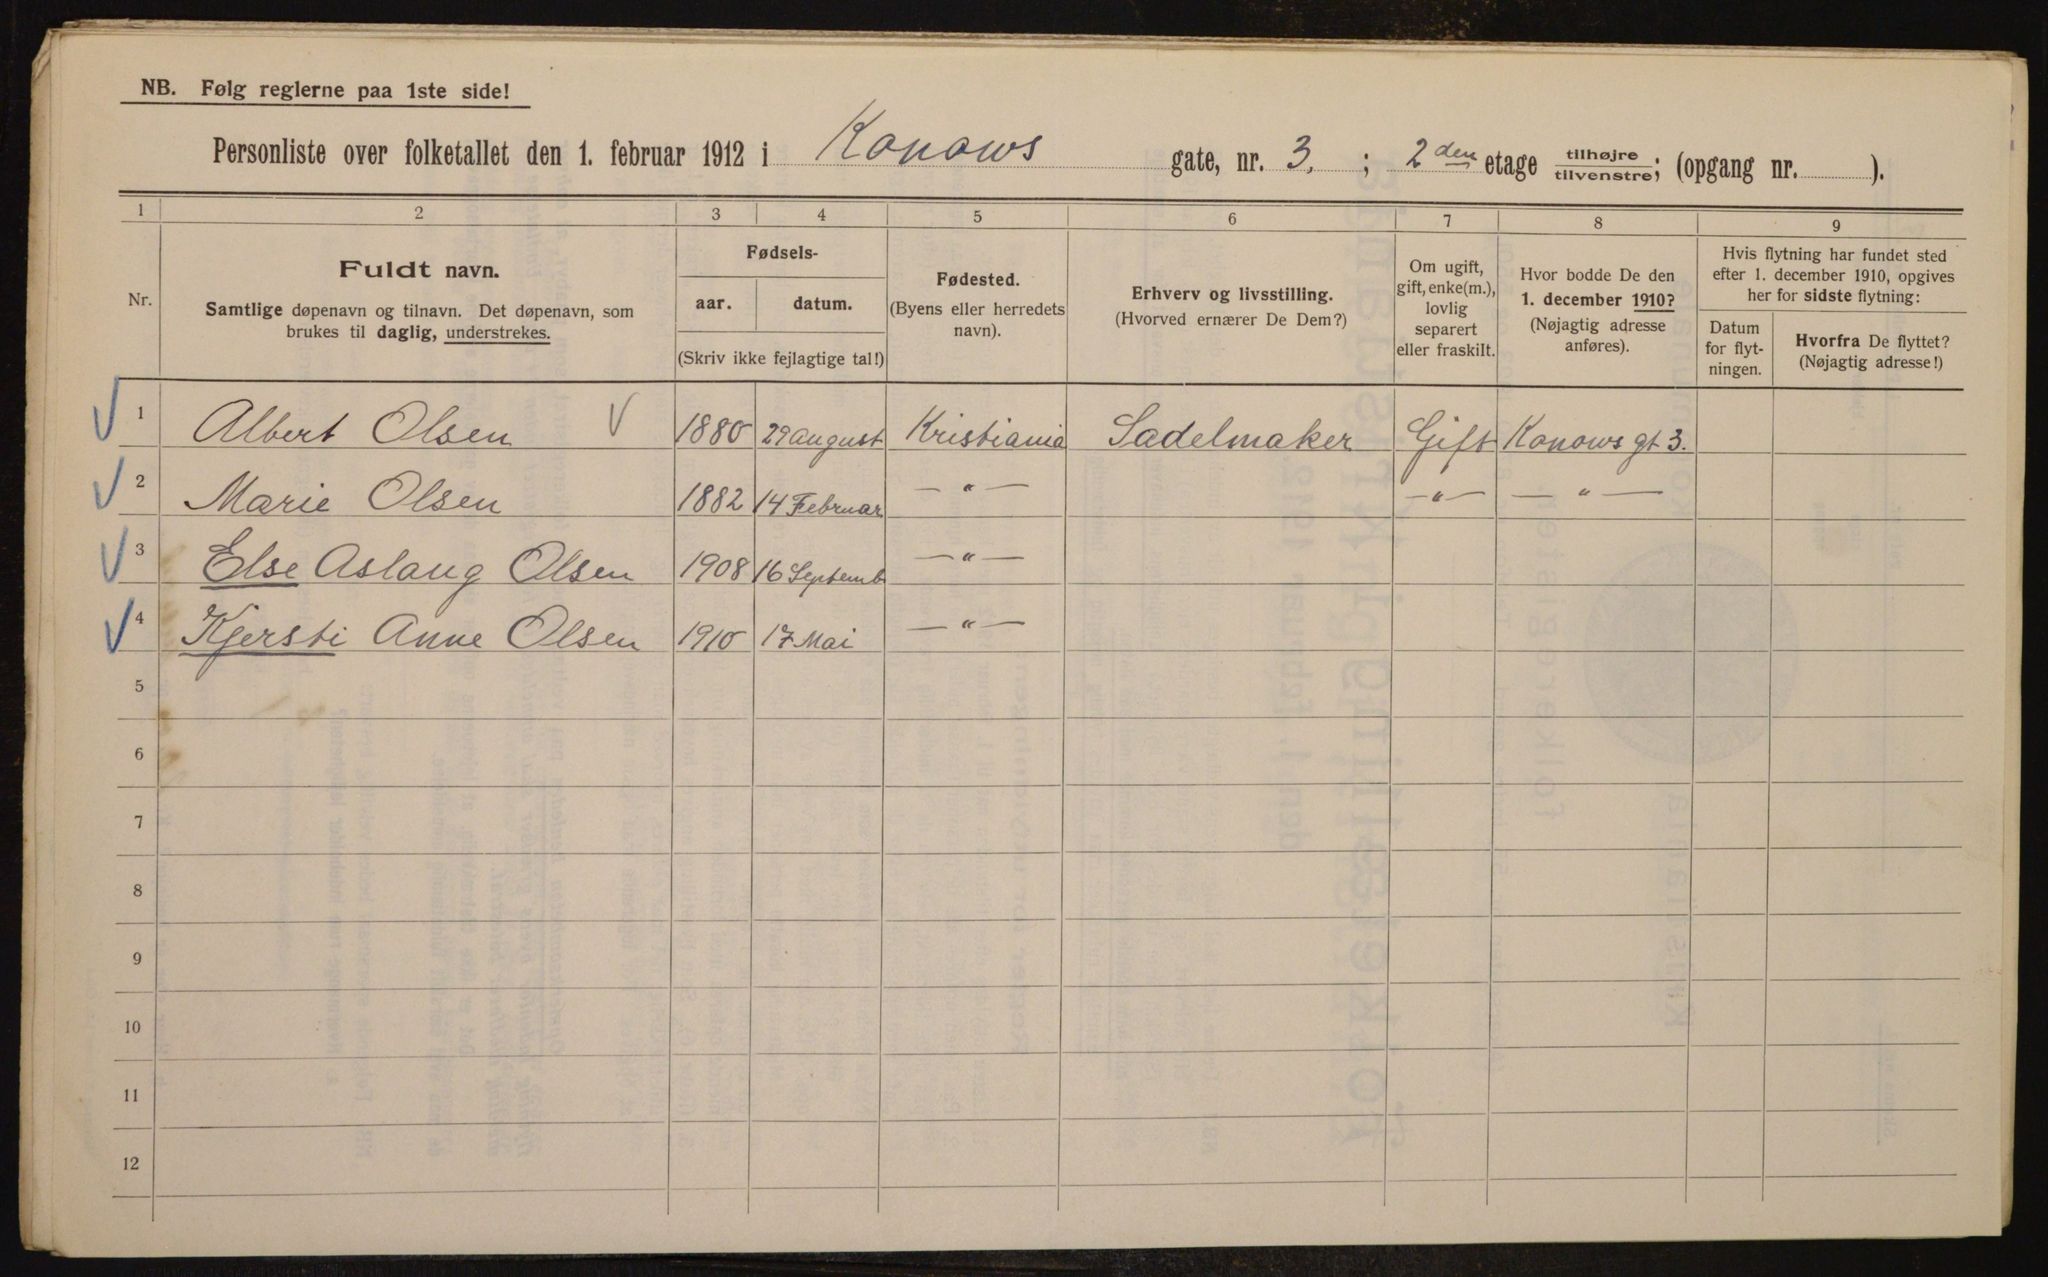 NB. Følg reglerne paa 1ste side!
Personliste over folketallet den 1. februar 1912 i Konows gate, nr. 3, ; 2den etage tilhøjre tilvenstre; (opgang nr. ).
1 2 3 4 5 6 7 8 9
Nr.
Fuldt navn.
Samtlige døpenavn og tilnavn. Det døpenavn, som
brukes til daglig, understrekes.
Fødsels-
aar. datum.
(Skriv ikke fejlagtige tal!)
Fødested.
(Byens eller herredets
navn).
Erhverv og livsstilling.
(Hvorved ernærer De Dem?)
Om ugift,
gift, enke(m.),
lovlig
separert
eller fraskilt.
Hvor bodde De den
1. december 1910?
(Nøjagtig adresse
anføres).
Hvis flytning har fundet sted
efter 1. december 1910, opgives
her for sidste flytning:
Datum
for flyt-
ningen.
Hvorfra De flyttet?
(Nøjagtig adresse!)
1 Albert Olsen 1880 29 august Kristiania Sadelmaker Gift Konows gt 3.
2 Marie Olsen 1882 14 Februar — " — — " — — " —
3 Else Aslaug Olsen 1908 16 Septemb — " —
4 Kjersti Anne Olsen 1910 17 Mai — " —
5
6
7
8
9
10
11
12